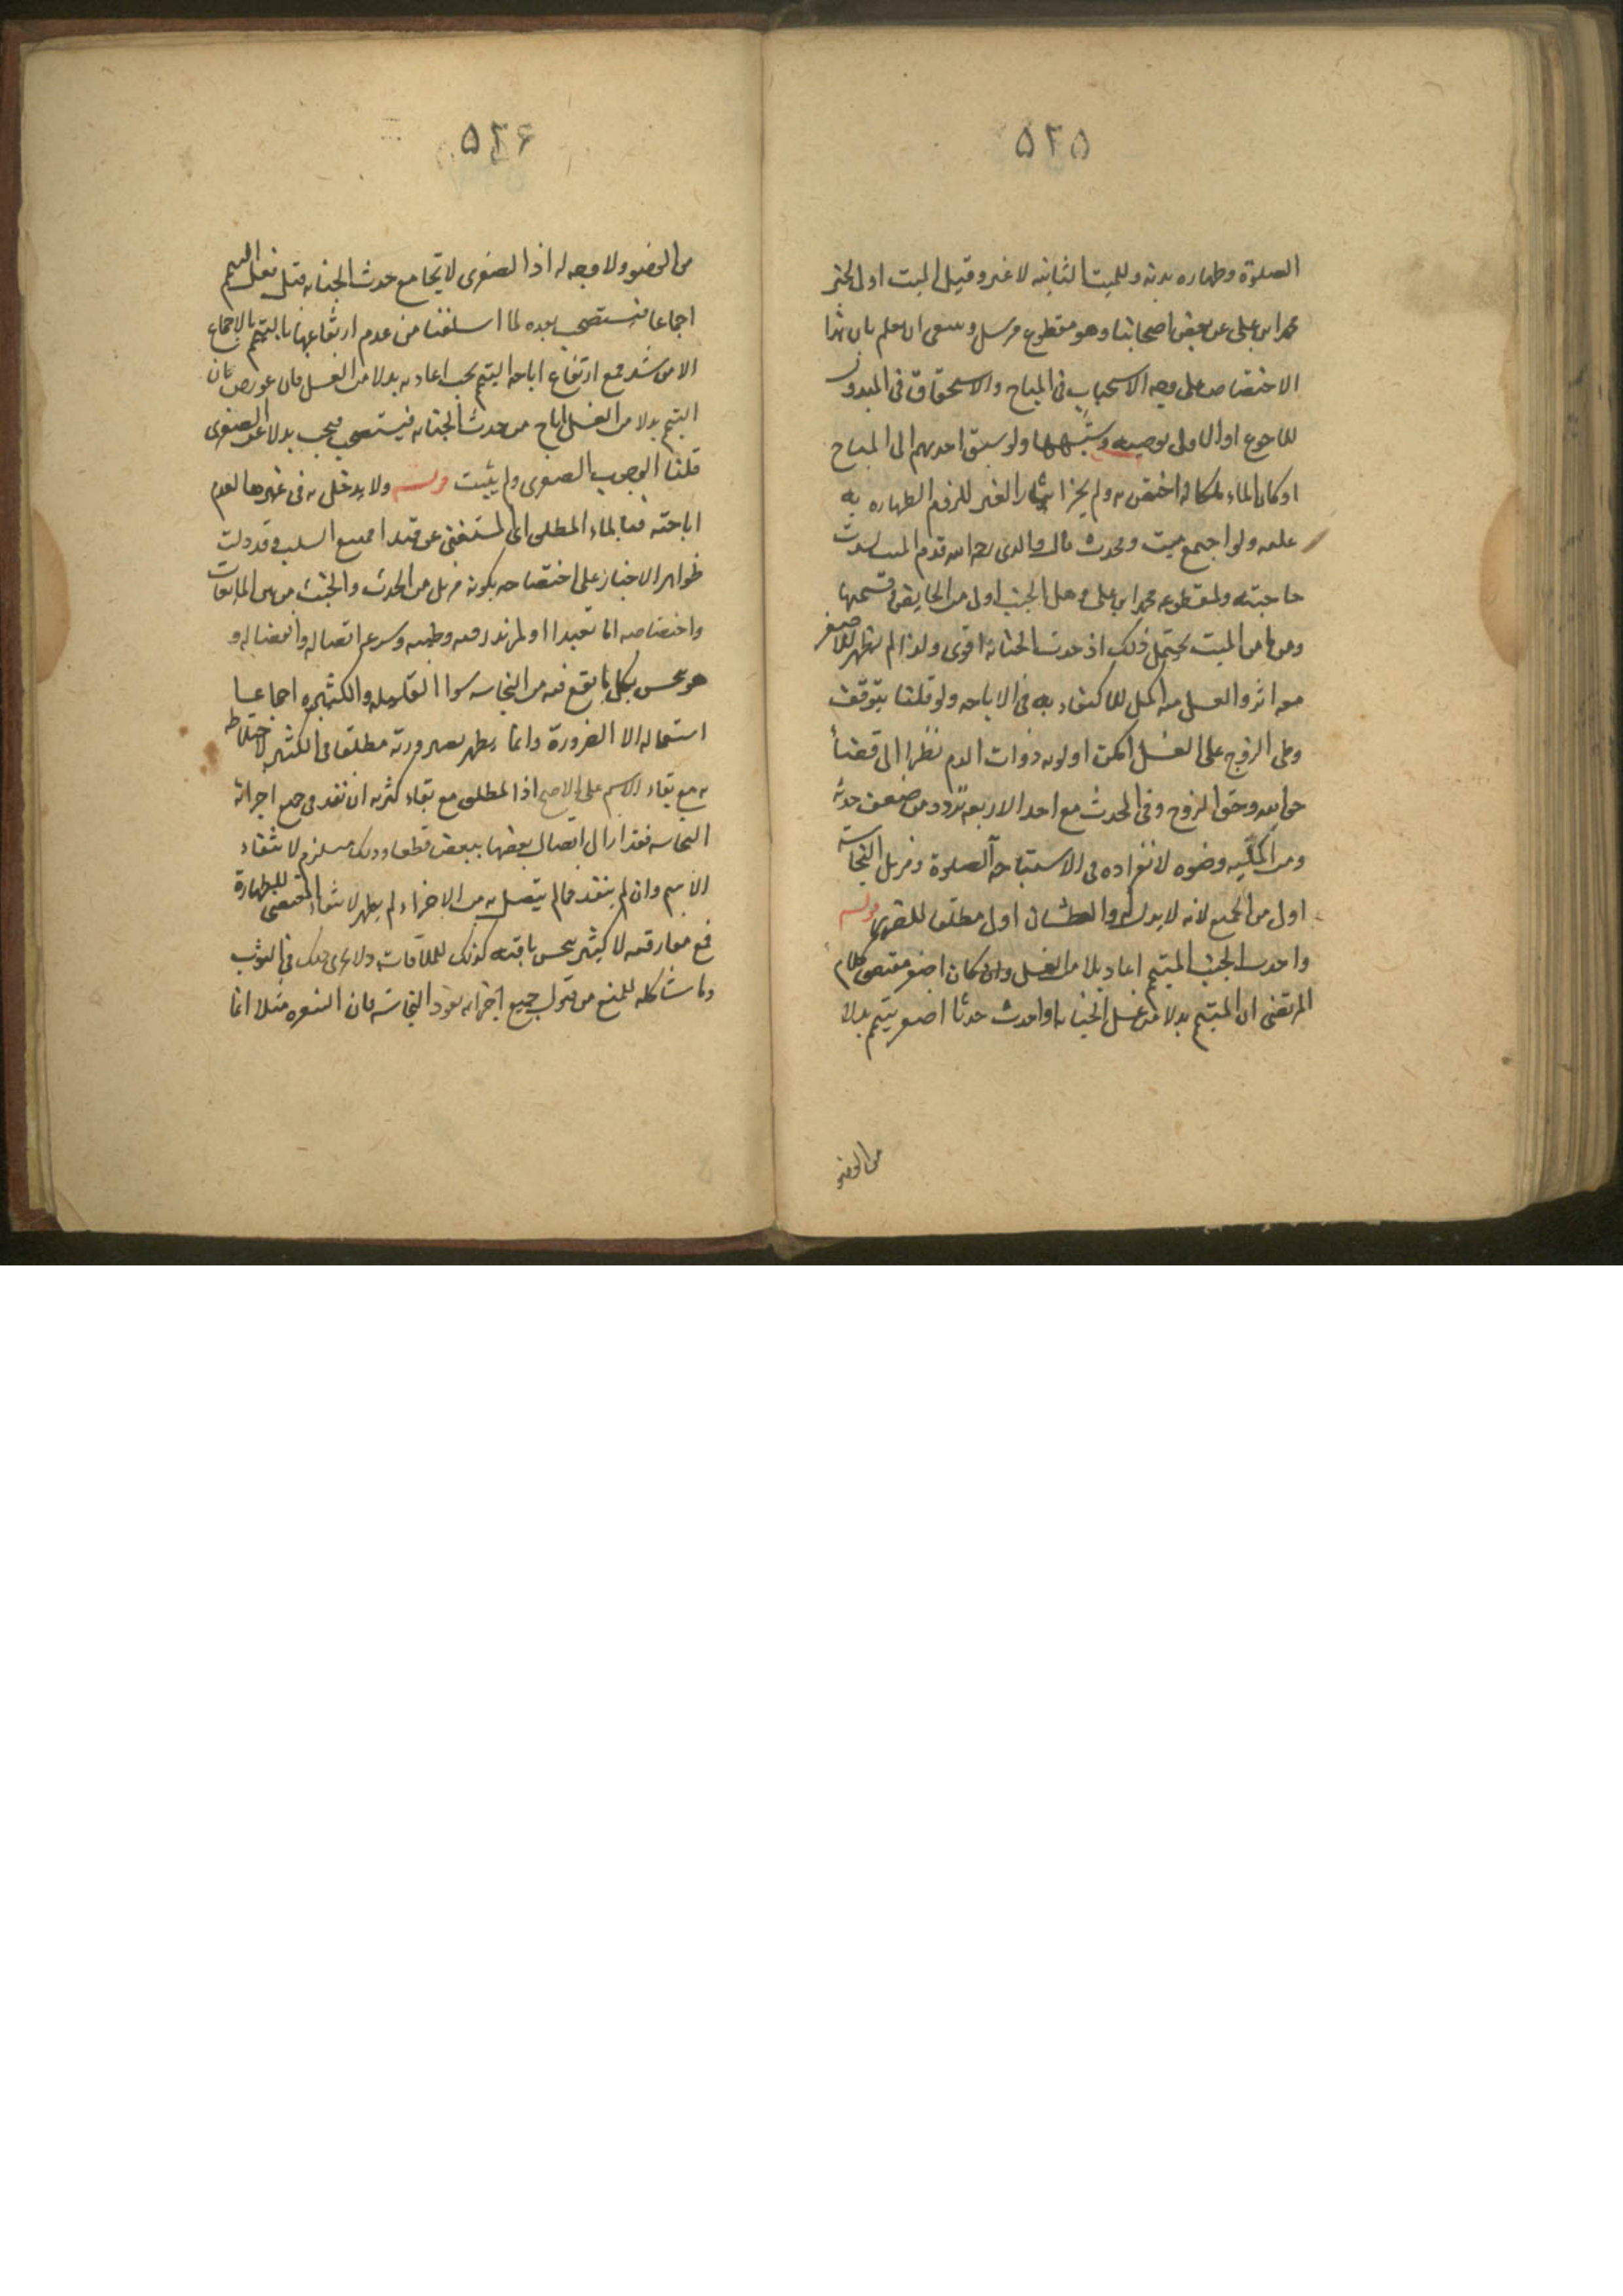 ٥٢٥
الصلوة وطهاره بدنه وللميت الثانيه لا غير وقيل الميت اولى لخبر
محمد ابن على عن بعض اصحابنا وهو مقطوع مرسل وينبغى ان يعلم بان هذا
الاختصاص على وجه الاستحباب فى المباح والاستحقاق فى المبذول
للاحوج او الاولى بوصيه وشبهها ولو سبق احدهم الى المباح
او كان الماء ملكا له اختص به ولم يجز ايثار الغير للزوم الطهاره به
عليه ولو اجتمع ميت ومحدث قال والدى رحمه الله قدم الميت لشدت
حاجته ولمقطوعه محمد ابن على وهل الجنب اولى من الحايض وقسيمها
ومن ماس الميت يحتمل ذلك اذ حدث الجنابة اقوى ولذا لم يظهر للاصغر
معه اثر والغسل منه اكمل للاكتفاء به فى الاباحه ولو قلنا بتوقف
وطى الزوج على الغسل امكن اولويه ذوات الدم نظرا الى قضاء
حق الله وحق الزوج وفى المحدث مع احد الاربعه تردد من ضعف حدثه
ومن اكمليه وضوه لانفراده فى الاستباحة الصلوة ومزيل النجاسة
اولى من الجميع لانه لا بدل له والعطشان اولى مطلقا للضرورة قوله
واحدث الجنب المتيمم اعاد بدلا من الغسل وان كان اصغر مقتضى كلام
المرتضى ان المتيمم بدلا من غسل الجنابه لو احدث حدثا اصغر يتيمم بدلا
من الوضو
٥٢٦
من الوضو ولا وجه له اذا الصغرى لا تجامع حدث الجنابه قبل فعل التيمم
اجماعا فيستصحب بعده لما اسلفنا من عدم ارتفاعها بالتيمم بالاجماع
الا من شذ فمع ارتفاع اباحه التيمم يجب اعادته بدلا من الغسل فان عورض بان
التيمم بدلا من الغسل اباح من حدث الجنابه فيستصحب فيجب بدلا عن الصغرى
قلنا الوجوب الصغرى ولم يثبت قوله ولا يدخل به فى غيرها لعدم
اباحته فيما بالماء المطلق اى المستغنى عن قيد اممتنع السلب وقد دلت
ظواهر الاخبار على اختصاصه بكونه مزيل من الحدث والخبث من بين المايعات
واختصاصه اما تعبدا او لمزيد رقته وطيبه وسرعه اتصاله وانفصاله و
هو نجس بكل ما يقع فيه من النجاسه سوا القليله والكثيره اجماعا
استعماله الا الضرورة وانما يطهر بصيرورته مطلقا فى الكثير لاختلاطه
به مع بقاء الاسم على الاصح اذا المطلق مع بقاء كثرته ان نفذ فى جميع اجزائه
النجاسه فقد ازال اتصال بعضها ببعض قطعا وذلك مستلزم لانتفاء
الاسم وان لم ينفذ فما لم يتصل به من الاجزاء لم يطهر لانتفاء المقتضى للطهارة
فمع مفارقته لا كثير نجس باقيه كذلك للملاقات ولا يجرى ذلك فى الثوب
وما شاكله للمنع من قبول جميع اجزائه نفوذ النجاسة فان الشعره مثلا انما